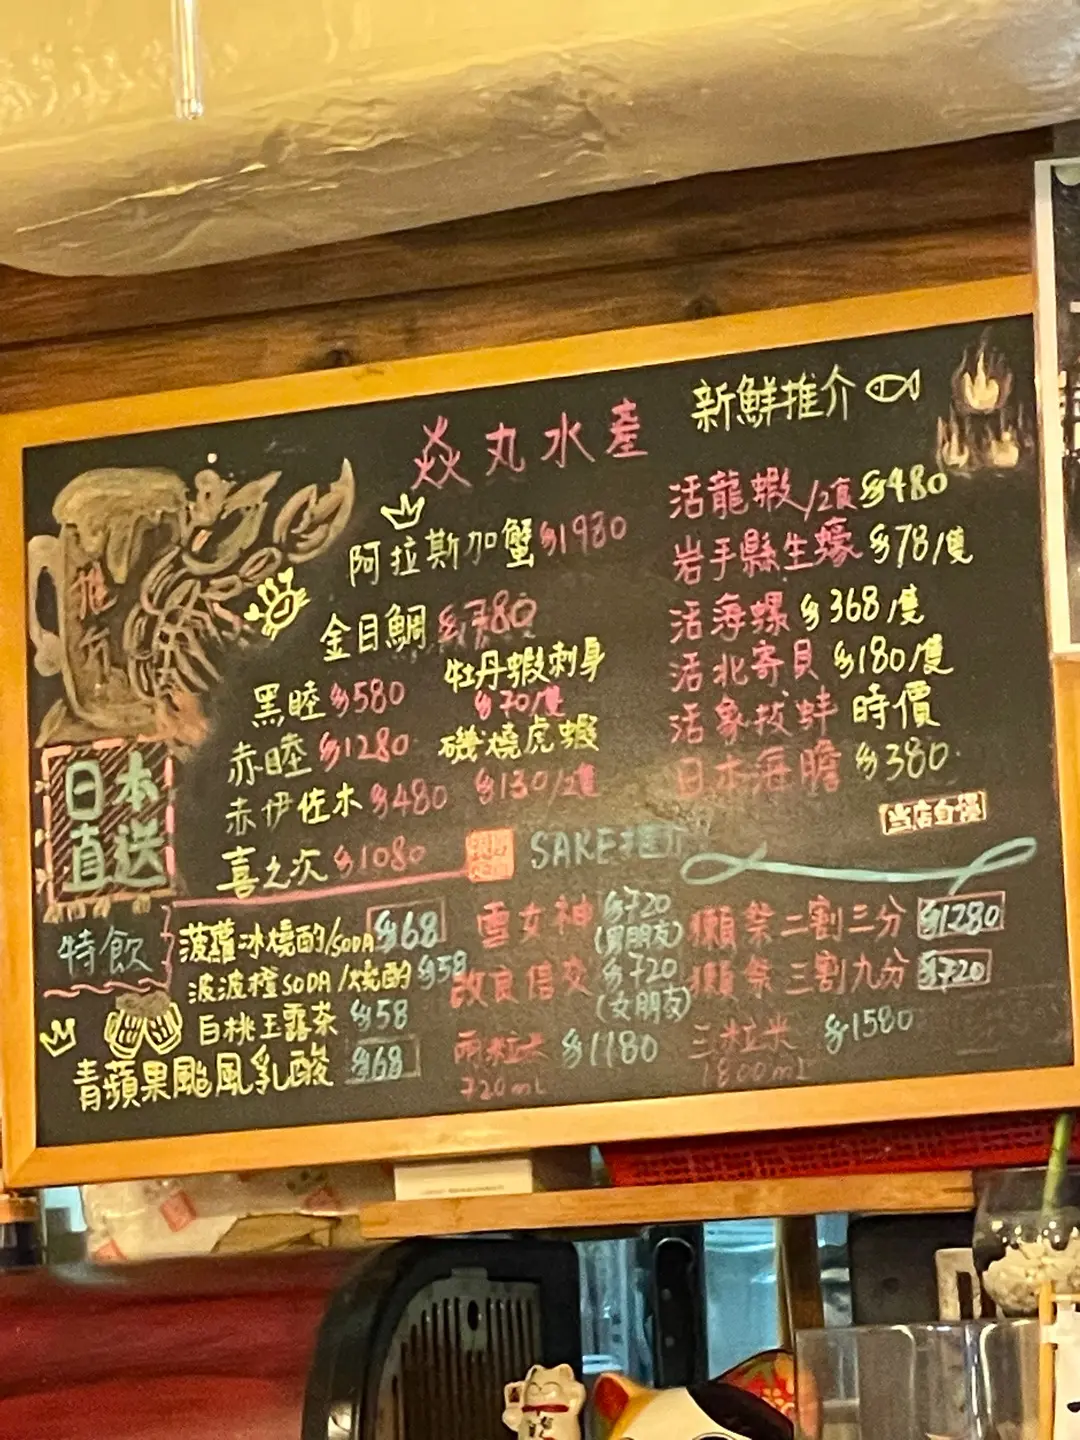 焱丸水產
新鮮推介
阿拉斯加蟹 $1980
金目鯛 $780
黑睦 $580
赤睦 $1280
赤伊佐木 $480
喜之次 $1080
牡丹蝦刺身
$70/隻
磯燒虎蝦
$130/2隻
活龍蝦/2食 $480
岩手縣生蠔 $78/隻
活海螺 $368/隻
活北寄貝 $180/隻
活象拔蚌 時價
日本海膽 $380
日本
直送
SAKE推介
雪女神 $720
(男朋友)
$720
(女朋友)
$1180
720mL
獺祭二割三分 $1280
獺祭三割九分 $720
三粒米 $1580
1800mL
特飲
菠蘿冰燒酌/SODA $68
波波橙SODA/燒酌 $58
白桃玉露茶 $58
青蘋果颱風乳酸 $68